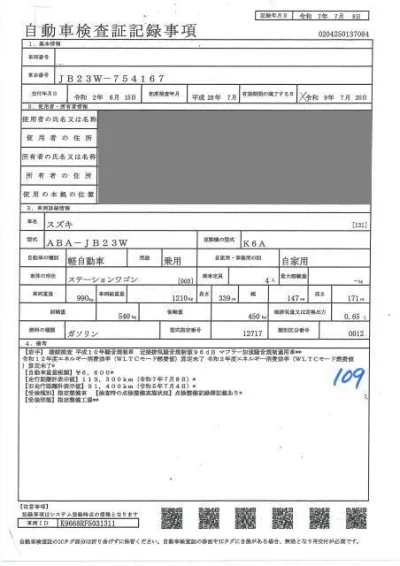 記録年月日 令和 7年 7月 8日
自動車検査証記録事項
0204250137084
1. 基本情報
車両番号
車台番号 JB23W-754167
交付年月日 令和 2年 6月 15日 初度検査年月 平成 28年 7月 有効期間の満了する日 令和 9年 7月 20日
2. 使用者・所有者情報
使用者の氏名又は名称
使用者の住所
所有者の氏名又は名称
所有者の住所
使用の本拠の位置
3. 車両詳細情報
車名 スズキ [131]
型式 ABA-JB23W 原動機の型式 K6A
自動車の種別 軽自動車 用途 乗用 自家用・事業用の別 自家用
車体の形状 ステーションワゴン [003] 乗車定員 4人 最大積載量 -kg
車両重量 990kg 車両総重量 1210kg 長さ 339cm 幅 147cm 高さ 171cm
前軸重 540kg 後軸重 450kg 総排気量又は定格出力 0.65L
燃料の種類 ガソリン 型式指定番号 12717 類別区分番号 0012
4. 備考
【岩手】 継続検査 平成10年騒音規制車 近接排気騒音規制値96dB マフラー加速騒音規制適用車**
令和12年度エネルギー消費効率(WLTCモード燃費値)算定未了 令和2年度エネルギー消費効率(WLTCモード燃費値)
算定未了*
【自動車重量税額】¥6,600*
【走行距離計表示値】113,300km(令和7年7月8日)*
【旧走行距離計表示値】91,400km(令和5年7月4日)*
【受検種別】指定整備車 【検査時の点検整備実施状況】点検整備記録簿記載あり*
【受検形態】指定整備工場**
109
【注意事項】
記録事項はシステム登録時点の情報となります
車両ID E9668KF5031311
自動車検査証のICタグ部分は折り曲げずに保管ください。自動車検査証の券面やICタグにき損がある場合、無効となり再交付が必要です。